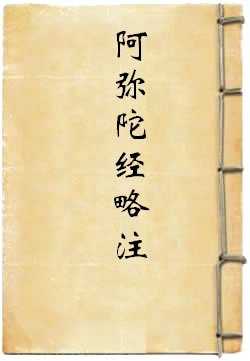 阿弥陀经略注